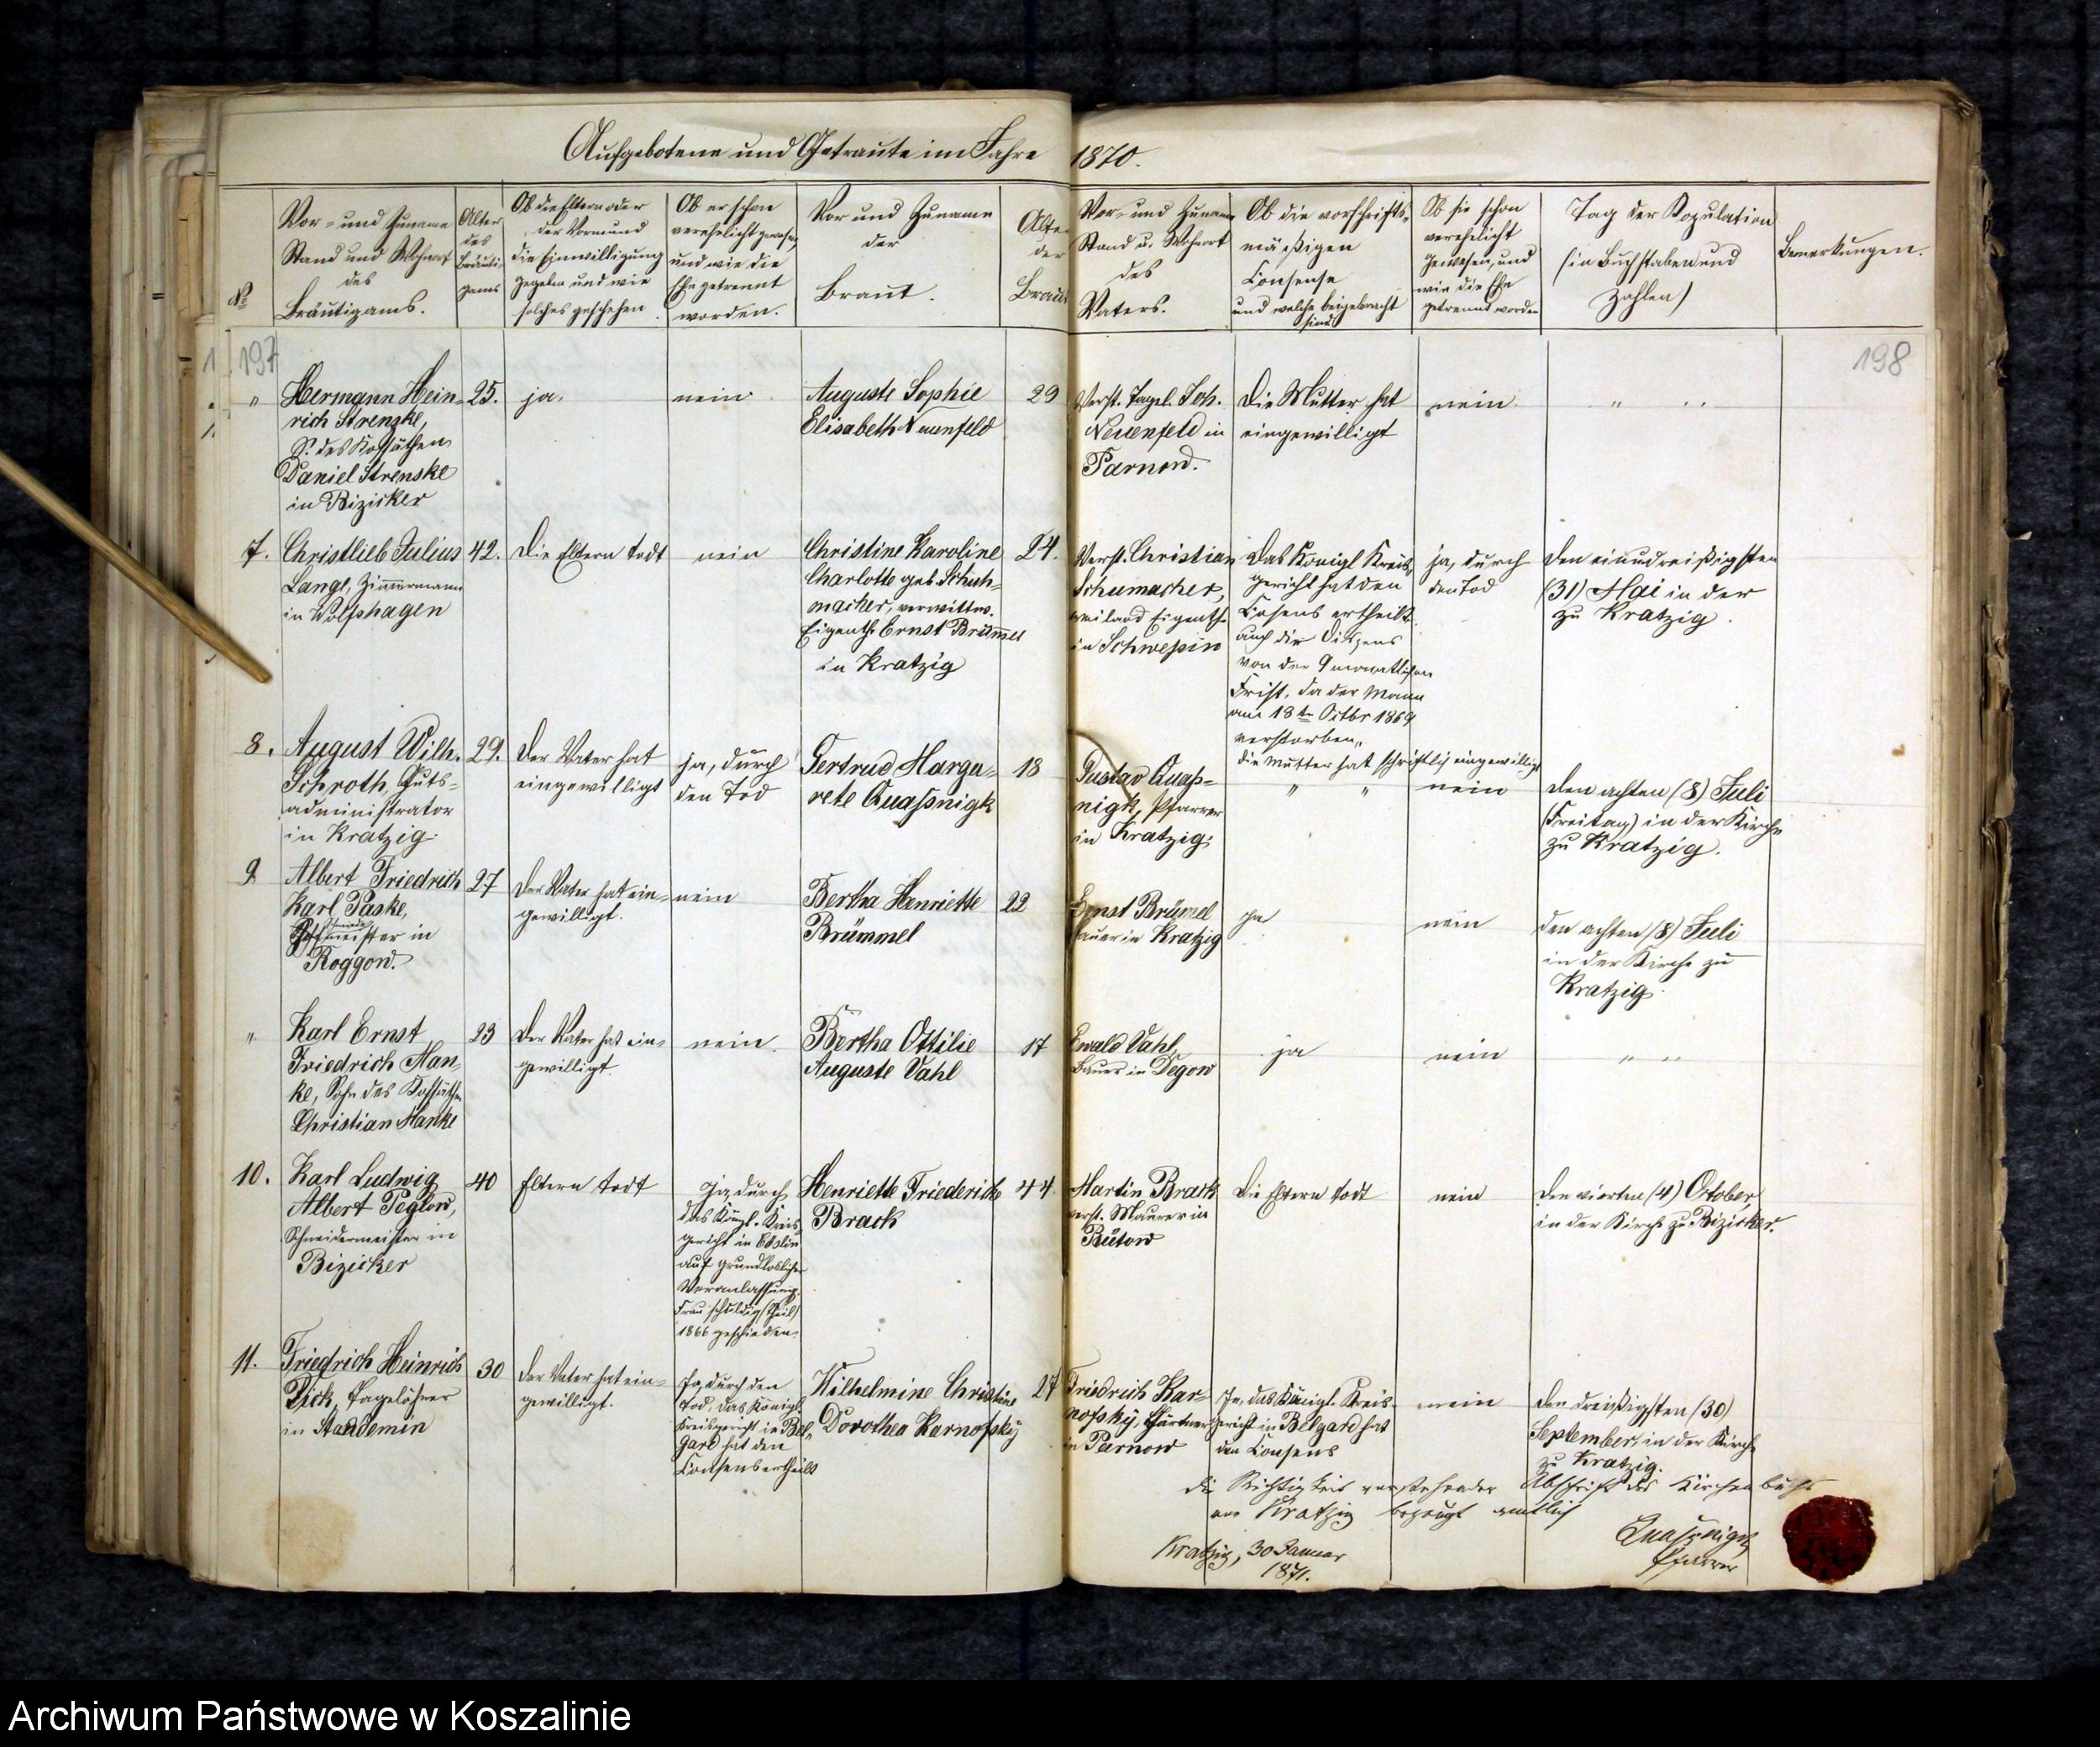 Aufgebotene und Getraute im Jahre 1870.
No
Vor- und Zuname
Stand und Wohnort
des
Bräutigams.
Alter
des
Bräuti-
gams
Ob die Eltern oder
der Vormund
die Einwilligung
gegeben und wie
solches geschehen.
Ob er schon
verehelicht gewesen,
und wie die
Ehe getrennt
worden.
Vor und Zuname
der
Braut.
Alter
der
Braut
Vor- und Zuname
Stand u. Wohnort
des
Vaters.
Ob die vorschrifts-
mäßigen
Consense
und welche beigebracht
sind
Ob sie schon
verehelicht
gewesen, und
wie die Ehe
getrennt worden
Tag der Kopulation
(in Buchstaben und
Zahlen)
Bemerkungen.
197
198
"
Hermann Hein-
rich Strenske,
S. des Kossäthen
Daniel Strenske
in Bizicker
25.
ja.
nein.
Auguste Sophie
Elisabeth Neuenfeld
29
Verst. Tagel. Joh.
Neuenfeld in
Parnow.
Die Mutter hat
eingewilligt
nein.
" "
7.
Christlieb Julius
Lange, Zimmermann
in Wolfshagen
42.
Die Eltern todt
nein
Christine Karoline
Charlotte geb. Schuh-
macher, verwittw.
Eigenth. Ernst Brümmel
in Kratzig
24.
Verst. Christian
Schumacher,
weiland Eigenth.
in Schwessin
Das Königl Kreis-
gericht hat den
Consens ertheilt
auch die Dispens
von der 9 monatlichen
Frist, da der Mann
am 18ten Octbr 1869
verstorben.
ja, durch
den Tod
den einundreißigsten
(31) Mai in der
zu Kratzig.
8.
August Wilh.
Schroth, Guts-
administrator
in Kratzig.
29.
Der Vater hat
eingewilligt
ja, durch
den Tod
Gertrud Marga-
rete Quassnigk
18
Gustav Quass-
nigk, Pfarrer
in Kratzig.
die Mutter hat schriftlich eingewilligt
" "
nein
den achten (8) Juli
(Freitag) in der Kirche
zu Kratzig.
9
Albert Friedrich
Karl Paske,
meister in
Roggow.
27
Der Vater hat ein-
gewilligt.
nein
Bertha Henriette
Brümmel
22
Ernst Brümel
Bauer in Kratzig
ja
nein
den achten (8) Juli
in der Kirche zu
Kratzig.
"
Karl Ernst
Friedrich Man-
ke, Sohn des Kossäthen
Christian Manke
23
Der Vater hat ein-
gewilligt.
nein.
Bertha Ottilie
Auguste Vahl
17
Ewald Vahl,
Bauer in Degow
ja
nein
" "
10.
Karl Ludwig
Albert Peglow,
Schneidermeister in
Bizicker
40
Eltern todt
Ja, durch
das Königl. Kreis-
gericht in Cöslin
auf
Veranlassung.
Frau schuldig (Theil)
1866 geschieden.
Henriette Friederike
Brack
44.
Martin Brack
verst. Maurer in
Bütow
Die Eltern todt
nein
den vierten (4) October,
in der Kirche zu Bizicker.
11.
Friedrich Heinrich
Dick, Tagelöhner
in Standemin
30
der Vater hat ein-
gewilligt.
Ja, durch den
Tod, das Königl.
Kreisgericht in Bel-
gard hat den
Consens ertheilt
Wilhelmine Christine
Dorothea Karnofsky
27
Friedrich Kar-
nofsky, Gärtner
in Parnow
Ja, das Königl. Kreis-
gericht in Belgard hat
den Consens
nein
den dreißigsten (30)
September, in der Kirche
zu Kratzig.
die Richtigkeit vorstehender Abschrift des Kirchenbuchs
von Kratzig bezeugt amtlich
Kratzig, 30 Januar
1871.
Quassnigk
Pfarrer
Archiwum Państwowe w Koszalinie